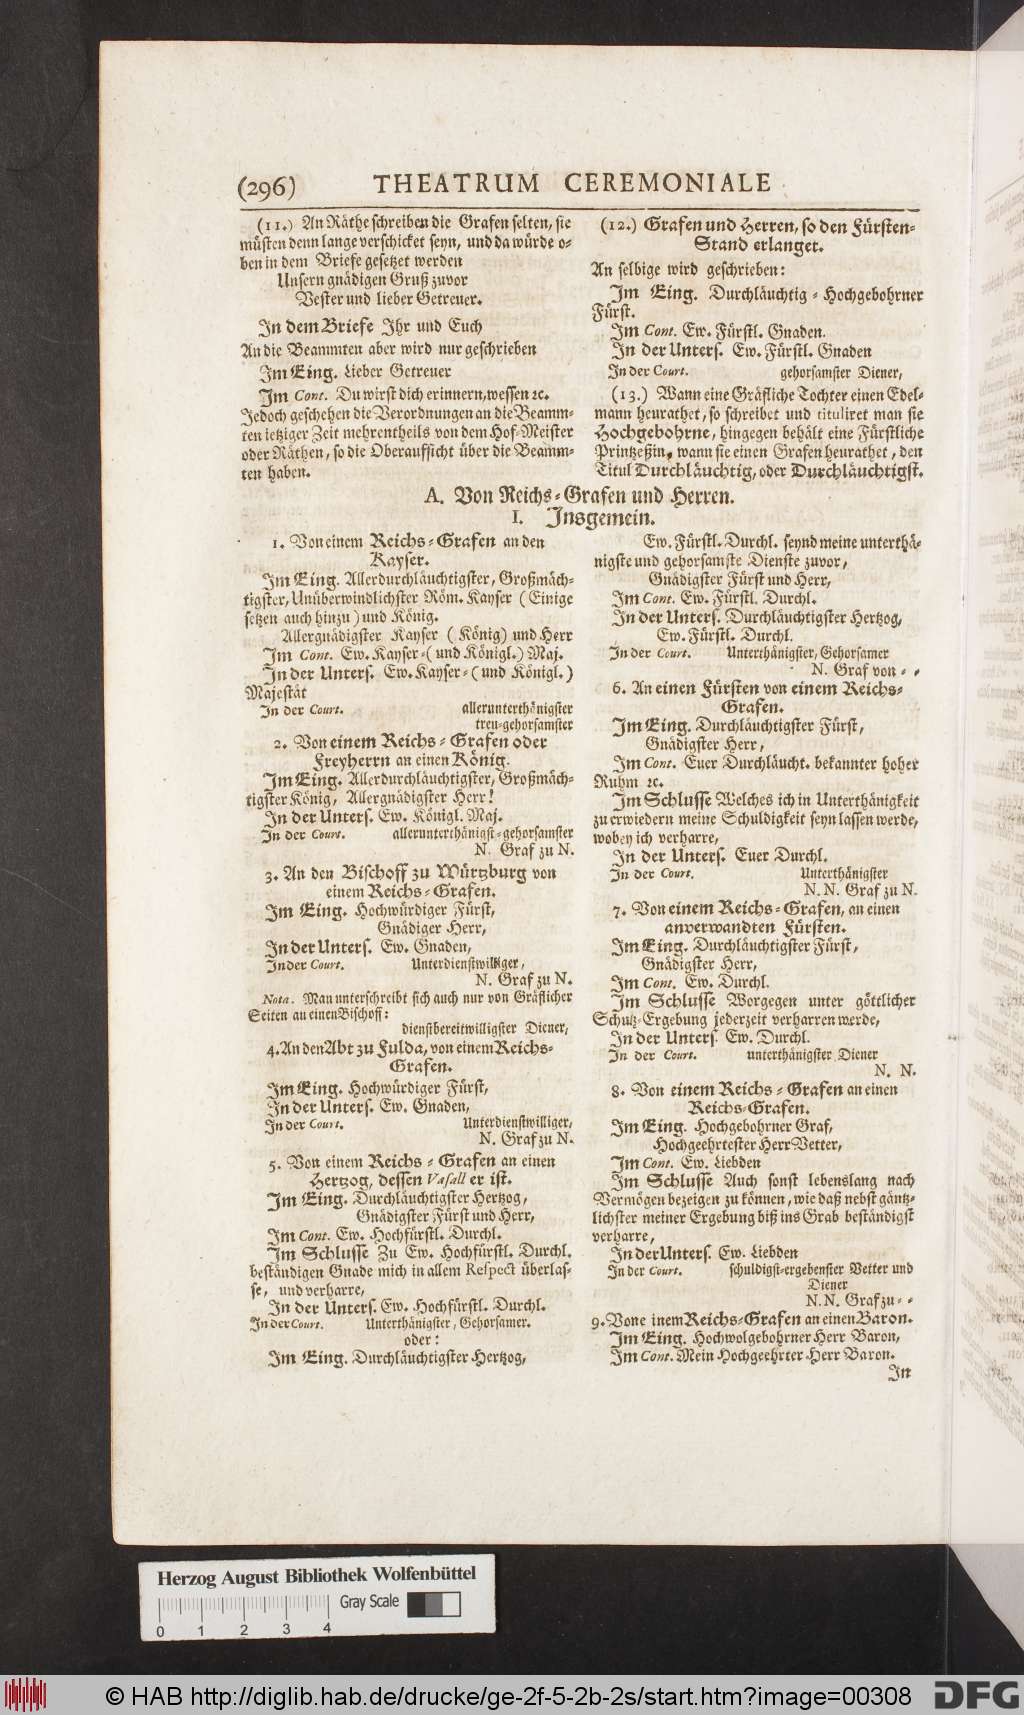 (296) THEATRUM CEREMONIALE
(11.) An Räthe schreiben die Grafen selten, sie
müsten denn lange verschicket seyn, und da würde o-
ben in dem Briefe gesetzet werden
Unsern gnädigen Gruß zuvor
Vester und lieber Getreuer.
In dem Briefe Ihr und Euch
An die Beammten aber wird nur geschrieben
Im Eing. Lieber Getreuer
Im Cont. Du wirst dich erinnern, wessen ꝛc.
Jedoch geschehen die Verordnungen an die Beamm-
ten ietziger Zeit mehrentheils von dem Hof-Meister
oder Räthen, so die Oberaufsicht über die Beamm-
ten haben.
(12.) Grafen und Herren, so den Fürsten-
Stand erlanget.
An selbige wird geschrieben:
Im Eing. Durchläuchtig-Hochgebohrner
Fürst.
Im Cont. Ew. Fürstl. Gnaden.
In der Unters. Ew. Fürstl. Gnaden
In der Court. gehorsamster Diener,
(13.) Wann eine Gräfliche Tochter einen Edel-
mann heurathet, so schreibet und tituliret man sie
Hochgebohrne, hingegen behält eine Fürstliche
Printzeßin, wann sie einen Grafen heurathet, den
Titul Durchläuchtig, oder Durchläuchtigst.
A. Von Reichs-Grafen und Herren.
I. Insgemein.
1. Von einem Reichs-Grafen an den
Kayser.
Im Eing. Allerdurchläuchtigster, Großmäch-
tigster, Unüberwindlichster Röm. Kayser (Einige
setzen auch hinzu) und König.
Allergnädigster Kayser (König) und Herr
Im Cont. Ew. Kayser-(und Königl.) Maj.
In der Unters. Ew. Kayser-(und Königl.)
Majestät
In der Court. allerunterthänigster
treu-gehorsamster
2. Von einem Reichs-Grafen oder
Freyherrn an einen König.
Im Eing. Allerdurchläuchtigster, Großmäch-
tigster König, Allergnädigster Herr!
In der Unters. Ew. Königl. Maj.
In der Court. allerunterthänigst-gehorsamster
N. Graf zu N.
3. An den Bischoff zu Würtzburg von
einem Reichs-Grafen.
Im Eing. Hochwürdiger Fürst,
Gnädiger Herr,
In der Unters. Ew. Gnaden,
In der Court. Unterdienstwilliger,
N. Graf zu N.
Nota. Man unterschreibt sich auch nur von Gräflicher
Seiten an einen Bischoff:
dienstbereitwilligster Diener,
4. An den Abt zu Fulda, von einem Reichs-
Grafen.
Im Eing. Hochwürdiger Fürst,
In der Unters. Ew. Gnaden,
In der Court. Unterdienstwilliger,
N. Graf zu N.
5. Von einem Reichs-Grafen an einen
Hertzog, dessen Vasall er ist.
Im Eing. Durchläuchtigster Hertzog,
Gnädigster Fürst und Herr,
Im Cont. Ew. Hochfürstl. Durchl.
Im Schlusse Zu Ew. Hochfürstl. Durchl.
beständigen Gnade mich in allem Respect überlas-
se, und verharre,
In der Unters. Ew. Hochfürstl. Durchl.
In der Court. Unterthänigster, Gehorsamer.
oder:
Im Eing. Durchläuchtigster Hertzog,
Ew. Fürstl. Durchl. seynd meine unterthä-
nigste und gehorsamste Dienste zuvor,
Gnädigster Fürst und Herr,
Im Cont. Ew. Fürstl. Durchl.
In der Unters. Durchläuchtigster Hertzog,
Ew. Fürstl. Durchl.
In der Court. Unterthänigster, Gehorsamer
N. Graf von - -
6. An einen Fürsten von einem Reichs-
Grafen.
Im Eing. Durchläuchtigster Fürst,
Gnädigster Herr,
Im Cont. Euer Durchläucht. bekannter hoher
Ruhm ꝛc.
Im Schlusse Welches ich in Unterthänigkeit
zu erwiedern meine Schuldigkeit seyn lassen werde,
wobey ich verharre,
In der Unters. Euer Durchl.
In der Court. Unterthänigster
N. N. Graf zu N.
7. Von einem Reichs-Grafen, an einen
anverwandten Fürsten.
Im Eing. Durchläuchtigster Fürst,
Gnädigster Herr,
Im Cont. Ew. Durchl.
Im Schlusse Worgegen unter göttlicher
Schutz-Ergebung jederzeit verharren werde,
In der Unters. Ew. Durchl.
In der Court. unterthänigster Diener
N. N.
8. Von einem Reichs-Grafen an einen
Reichs-Grafen.
Im Eing. Hochgebohrner Graf,
Hochgeehrtester Herr Vetter,
Im Cont. Ew. Liebden
Im Schlusse Auch sonst lebenslang nach
Vermögen bezeigen zu können, wie daß nebst gäntz-
lichster meiner Ergebung biß ins Grab beständigst
verharre,
In der Unters. Ew. Liebden
In der Court. schuldigst-ergebenster Vetter und
Diener
N. N. Graf zu - -
9. Vone inem Reichs-Grafen an einen Baron.
Im Eing. Hochwolgebohrner Herr Baron,
Im Cont. Mein Hochgeehrter Herr Baron.
In
Herzog August Bibliothek Wolfenbüttel
Gray Scale
0 1 2 3 4
© HAB http://diglib.hab.de/drucke/ge-2f-5-2b-2s/start.htm?image=00308
DFG